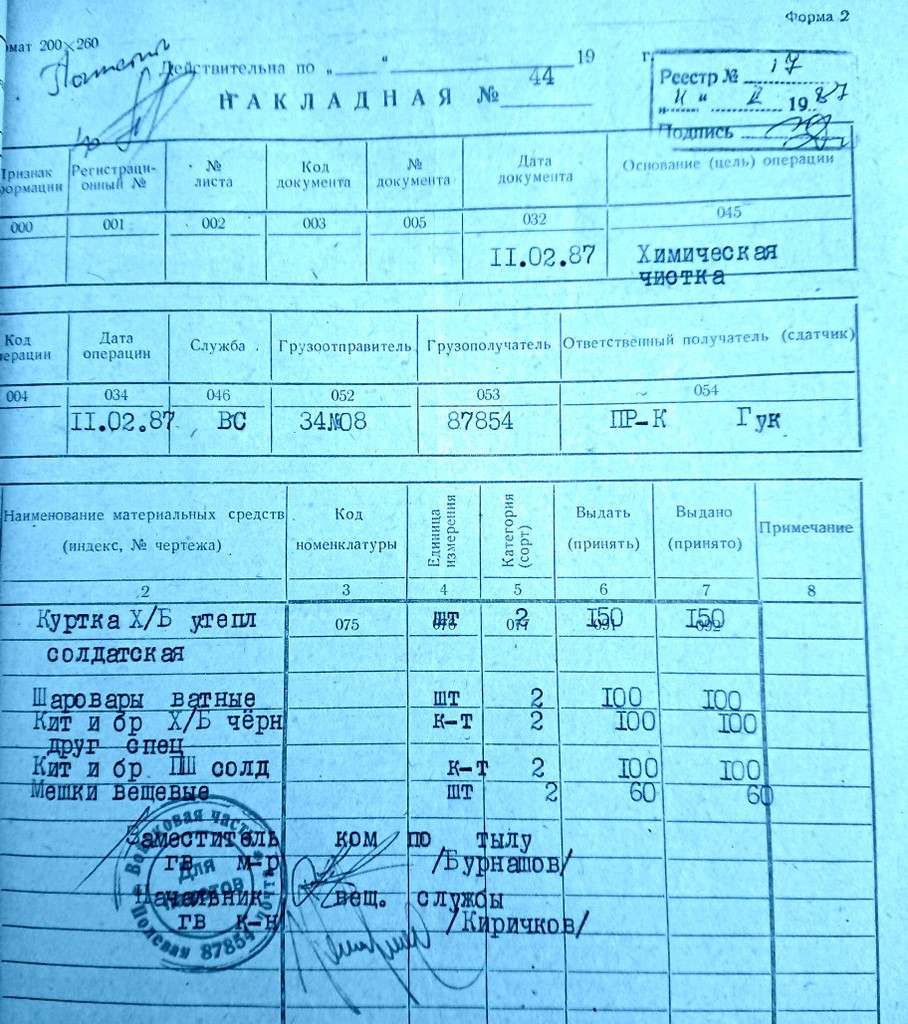 Форма 2
мат 200×260
Действительна по „ “ 19 г.
НАКЛАДНАЯ № 44
Реестр № 17
„11“ 2 1987
Подпись
Признак формации
Регистраци-
онный №
№
листа
Код
документа
№
документа
Дата
документа
Основание (цель) операции
000 001 002 003 005 032 045
II.02.87 Химическая
чистка
Код
ерации
Дата
операции
Служба
Грузоотправитель
Грузополучатель
Ответственный получатель (сдатчик)
004 034 046 052 053 054
II.02.87 ВС 34№08 87854 ПР-К Гук
Наименование материальных средств
(индекс, № чертежа)
Код
номенклатуры
Единица
измерения
Категория
(сорт)
Выдать
(принять)
Выдано
(принято)
Примечание
2 3 4 5 6 7 8
Куртка Х/Б утепл 075 шт 2 I50 I50
солдатская
Шаровары ватные шт 2 I00 I00
Кит и бр Х/Б чёрн к-т 2 I00 I00
друг спец
Кит и бр ПШ солд к-т 2 I00 I00
Мешки вещевые шт 2 60 60
Заместитель ком по тылу
гв м-р /Бурнашов/
Начальник вещ. службы
гв к-н /Киричков/
Войсковая часть
Для
Полевая почта 87854